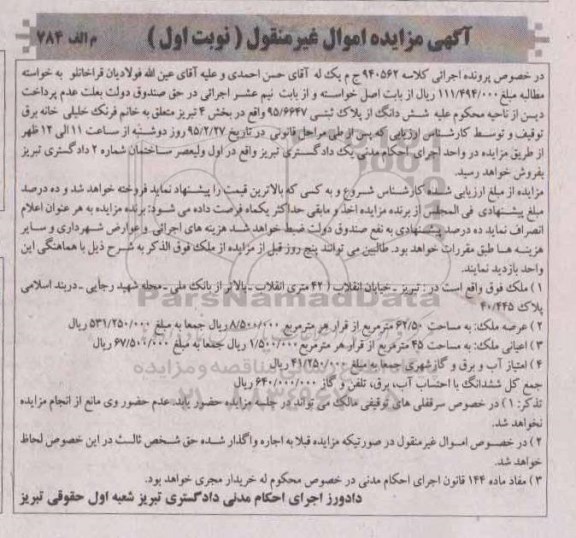 آگهی مزایده اموال غیرمنقول ( نوبت اول )
م الف ۷۸۴
در خصوص پرونده اجرائی کلاسه ۹۴۰۵۶۲ ج م یک له آقای حسن احمدی و علیه آقای عین الله فولادیان قراخانلو به خواسته
مطالبه مبلغ ۱۱۱/۴۹۴/۰۰۰ ریال از بابت اصل خواسته و از بابت نیم عشر اجرائی در حق صندوق دولت بعلت عدم پرداخت
دین از ناحیه محکوم علیه شش دانگ از پلاک ثبتی ۹۵/۶۶۴۷ واقع در بخش ۴ تبریز متعلق به خانم فرنک خلیلی خانه برق
توقیف و توسط کارشناس ارزیابی که پس از طی مراحل قانونی در تاریخ ۹۵/۲/۲۷ روز دوشنبه از ساعت ۱۱ الی ۱۲ ظهر
از طریق مزایده در واحد اجرای احکام مدنی یک دادگستری تبریز واقع در اول ولیعصر ساختمان شماره ۲ دادگستری تبریز
بفروش خواهد رسید.
مزایده از مبلغ ارزیابی شده کارشناس شروع و به کسی که بالاترین قیمت را پیشنهاد نماید فروخته خواهد شد و ده درصد
مبلغ پیشنهادی فی المجلس از برنده مزایده اخذ و مابقی حداکثر یکماه فرصت داده می شود: برنده مزایده به هر عنوان اعلام
انصراف نماید ده درصد پیشنهادی به نفع صندوق دولت ضبط خواهد شد هزینه های اجرائی و عوارض شهرداری و سایر
هزینه ها طبق مقررات خواهد بود. طالبین می توانند پنج روز قبل از مزایده از ملک فوق الذکر به شرح ذیل با هماهنگی این
واحد بازدید نمایند.
۱) ملک فوق واقع است در : تبریز ـ خیابان انقلاب ( ۴۲ متری انقلاب ـ بالاتر از بانک ملی ـ محله شهید رجایی ـ دربند اسلامی
پلاک ۴۰/۴۴۵
۲) عرصه ملک: به مساحت ۶۲/۵۰ مترمربع از قرار هر مترمربع ۸/۵۰۰/۰۰۰ ریال جمعا به مبلغ ۵۳۱/۲۵۰/۰۰۰ ریال
۳) اعیانی ملک: به مساحت ۴۵ مترمربع از قرار هر مترمربع ۱/۵۰۰/۰۰۰ ریال جمعا به مبلغ ۶۷/۵۰۰/۰۰۰ ریال
۴) امتیاز آب و برق و گازشهری جمعا به مبلغ ۴۱/۲۵۰/۰۰۰ ریال
جمع کل ششدانگ با احتساب آب، برق، تلفن و گاز ۶۴۰/۰۰۰/۰۰۰ ریال
تذکر: ۱) در خصوص سرقفلی های توقیفی مالک می تواند در جلسه مزایده حضور یابد. عدم حضور وی مانع از انجام مزایده
نخواهد شد.
۲) در خصوص اموال غیرمنقول در صورتیکه مزایده قبلا به اجاره واگذار شده حق شخص ثالث در این خصوص لحاظ
خواهد شد.
۳) مفاد ماده ۱۴۴ قانون اجرای احکام مدنی در خصوص محکوم له خریدار مجری خواهد بود.
دادورز اجرای احکام مدنی دادگستری تبریز شعبه اول حقوقی تبریز
ParsNamadData